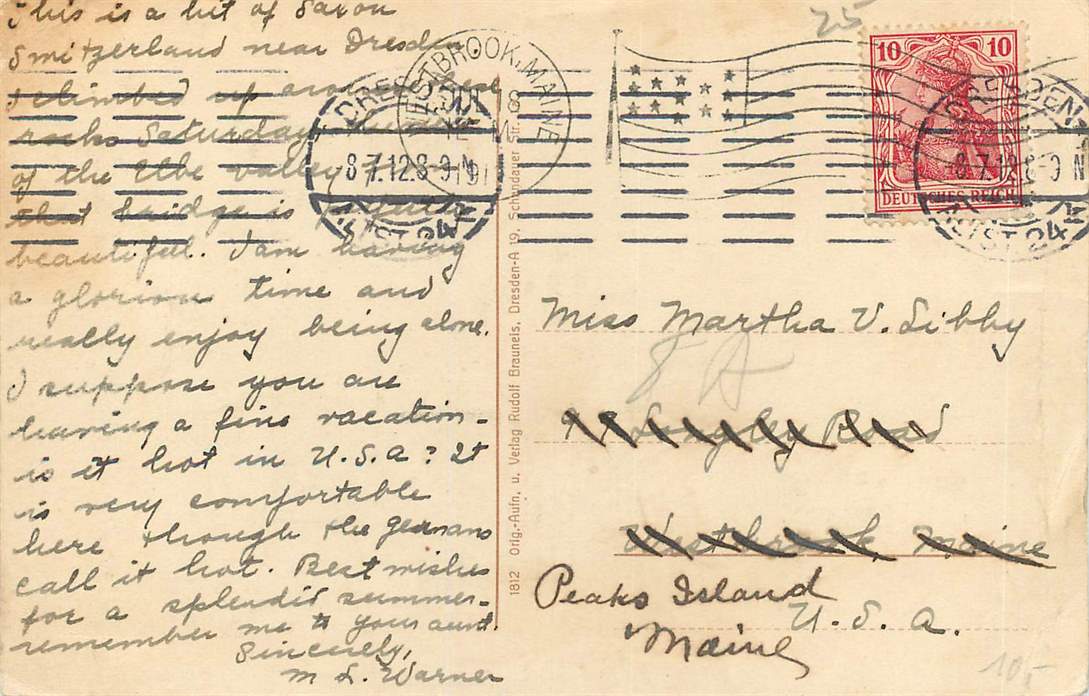 This is a bit of Saxon
Switzerland near Dresden
I climbed up
rocks Saturday
of the Elbe valley
that bridge is
beautiful. I am having
a glorious time and
really enjoy being alone.
I suppose you are
having a fine vacation -
is it hot in U.S.A? It
is very comfortable
here though the germans
call it hot. Best wishes
for a splendid summer -
remember me to your aunt.
Sincerely,
M L. Warner
WESTBROOK, MAINE
JUL 18
DRESDEN
8.7.12.8-9 N
ALTST. 24
1812 Orig.-Aufn. u. Verlag Rudolf Brauneis, Dresden-A 19, Schandauer Str.
25
10 10
DEUTSCHES REICH
DRESDEN
8.7.12.8-9 N
ALTST. 24
Miss Martha V. Libby
Longley Road
Westbrook Maine
Peaks Island
U.S.A.
Maine
10,-